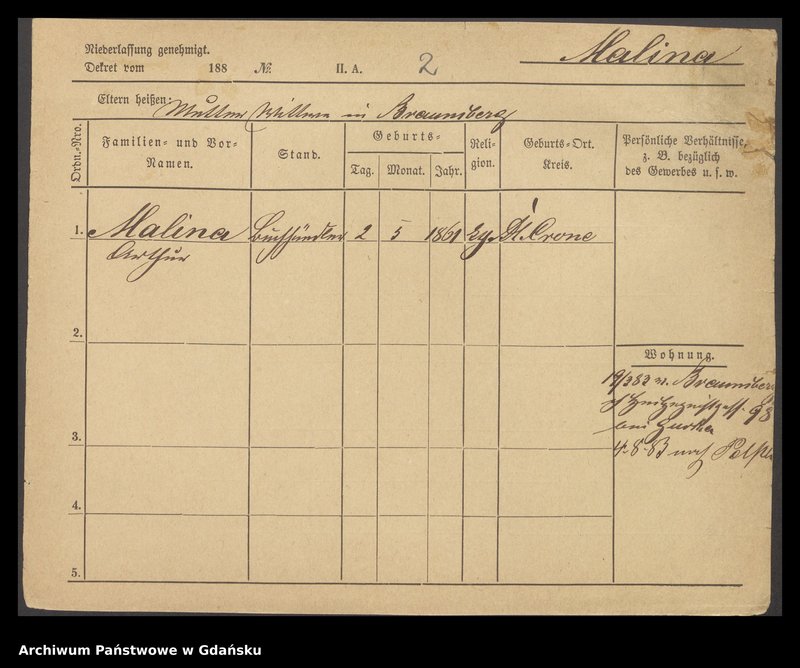 Niederlassung genehmigt.
Malina
Dekret vom 188 № II. A. 2
Eltern heißen: Mutter Wittwe in Braunsberg
Ordn.-Nro.
Familien- und Vor-Namen.
Stand.
Geburts-
Tag. Monat. Jahr.
Religion.
Geburts-Ort.
Kreis.
Persönliche Verhältnisse,
z. B. bezüglich
des Gewerbes u. s. w.
1. Malina Buchhändler 2 5 1861 Ev. Dt. Crone
Arthur
2.
Wohnung.
v. Braunsberg
98
bei
3.
4.8.83 nach
4.
5.
Archiwum Państwowe w Gdańsku